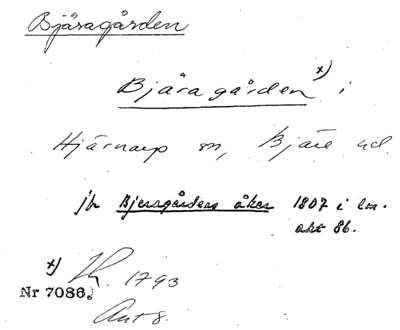 Bjäragården
Bjäragården x) i
Hjärnarp sn, Bjäre hd.
jfr Bjersgårdens åker 1807 i lm.
akt 86.
x) 1793
Nr 7086.
Akt 8.